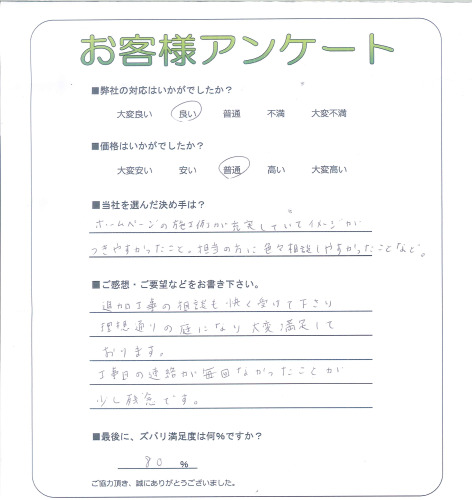 お客様アンケート
■弊社の対応はいかがでしたか？
大変良い 良い 普通 不満 大変不満
■価格はいかがでしたか？
大変安い 安い 普通 高い 大変高い
■当社を選んだ決め手は？
ホームページの施工例が充実していてイメージが
つきやすかったこと。担当の方に色々相談しやすかったことなど。
■ご感想・ご要望などをお書き下さい。
追加工事の相談も快く受けて下さり
理想通りの庭になり大変満足して
おります。
工事日の連絡が毎回なかったことが
少し残念です。
■最後に、ズバリ満足度は何%ですか？
80 %
ご協力頂き、誠にありがとうございました。